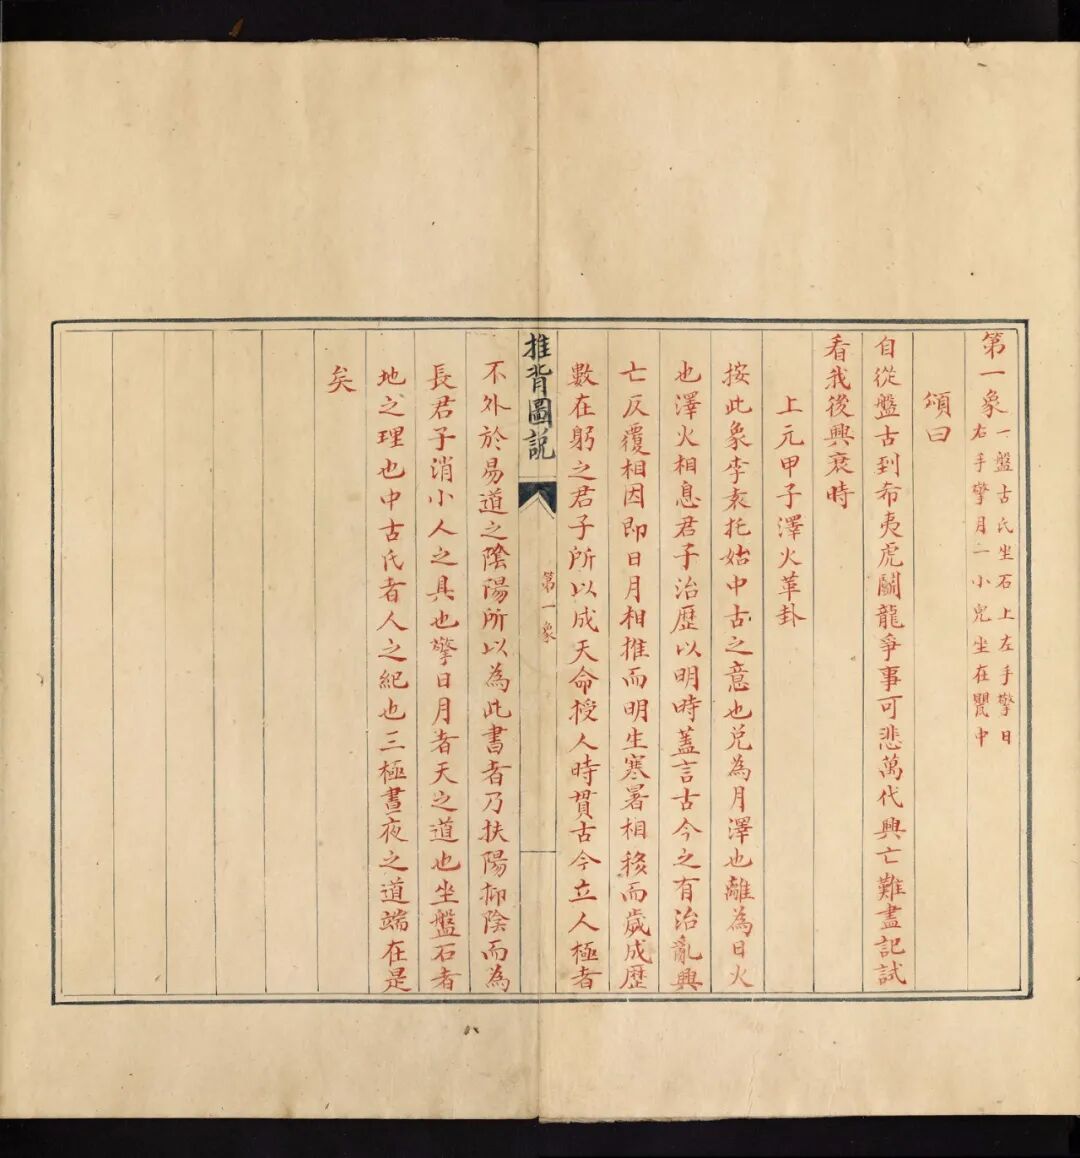 第一象
一盤古氏坐石上左手擎日
右手擎月二小兒坐在甖中
頌曰
自從盤古到希夷虎鬭龍爭事可悲萬代興亡難盡記試
看我後興衰時
上元甲子澤火革卦
按此象李袁托始中古之意也兌為月澤也離為日火
也澤火相息君子治歷以明時蓋言古今之有治亂興
亡反覆相因即日月相推而明生寒暑相移而歲成歷
數在躬之君子所以成天命授人時貫古今立人極者
推背圖說
第一象
不外於易道之陰陽所以為此書者乃扶陽抑陰而為
長君子消小人之具也擎日月者天之道也坐盤石者
地之理也中古氏者人之紀也三極晝夜之道端在是
矣